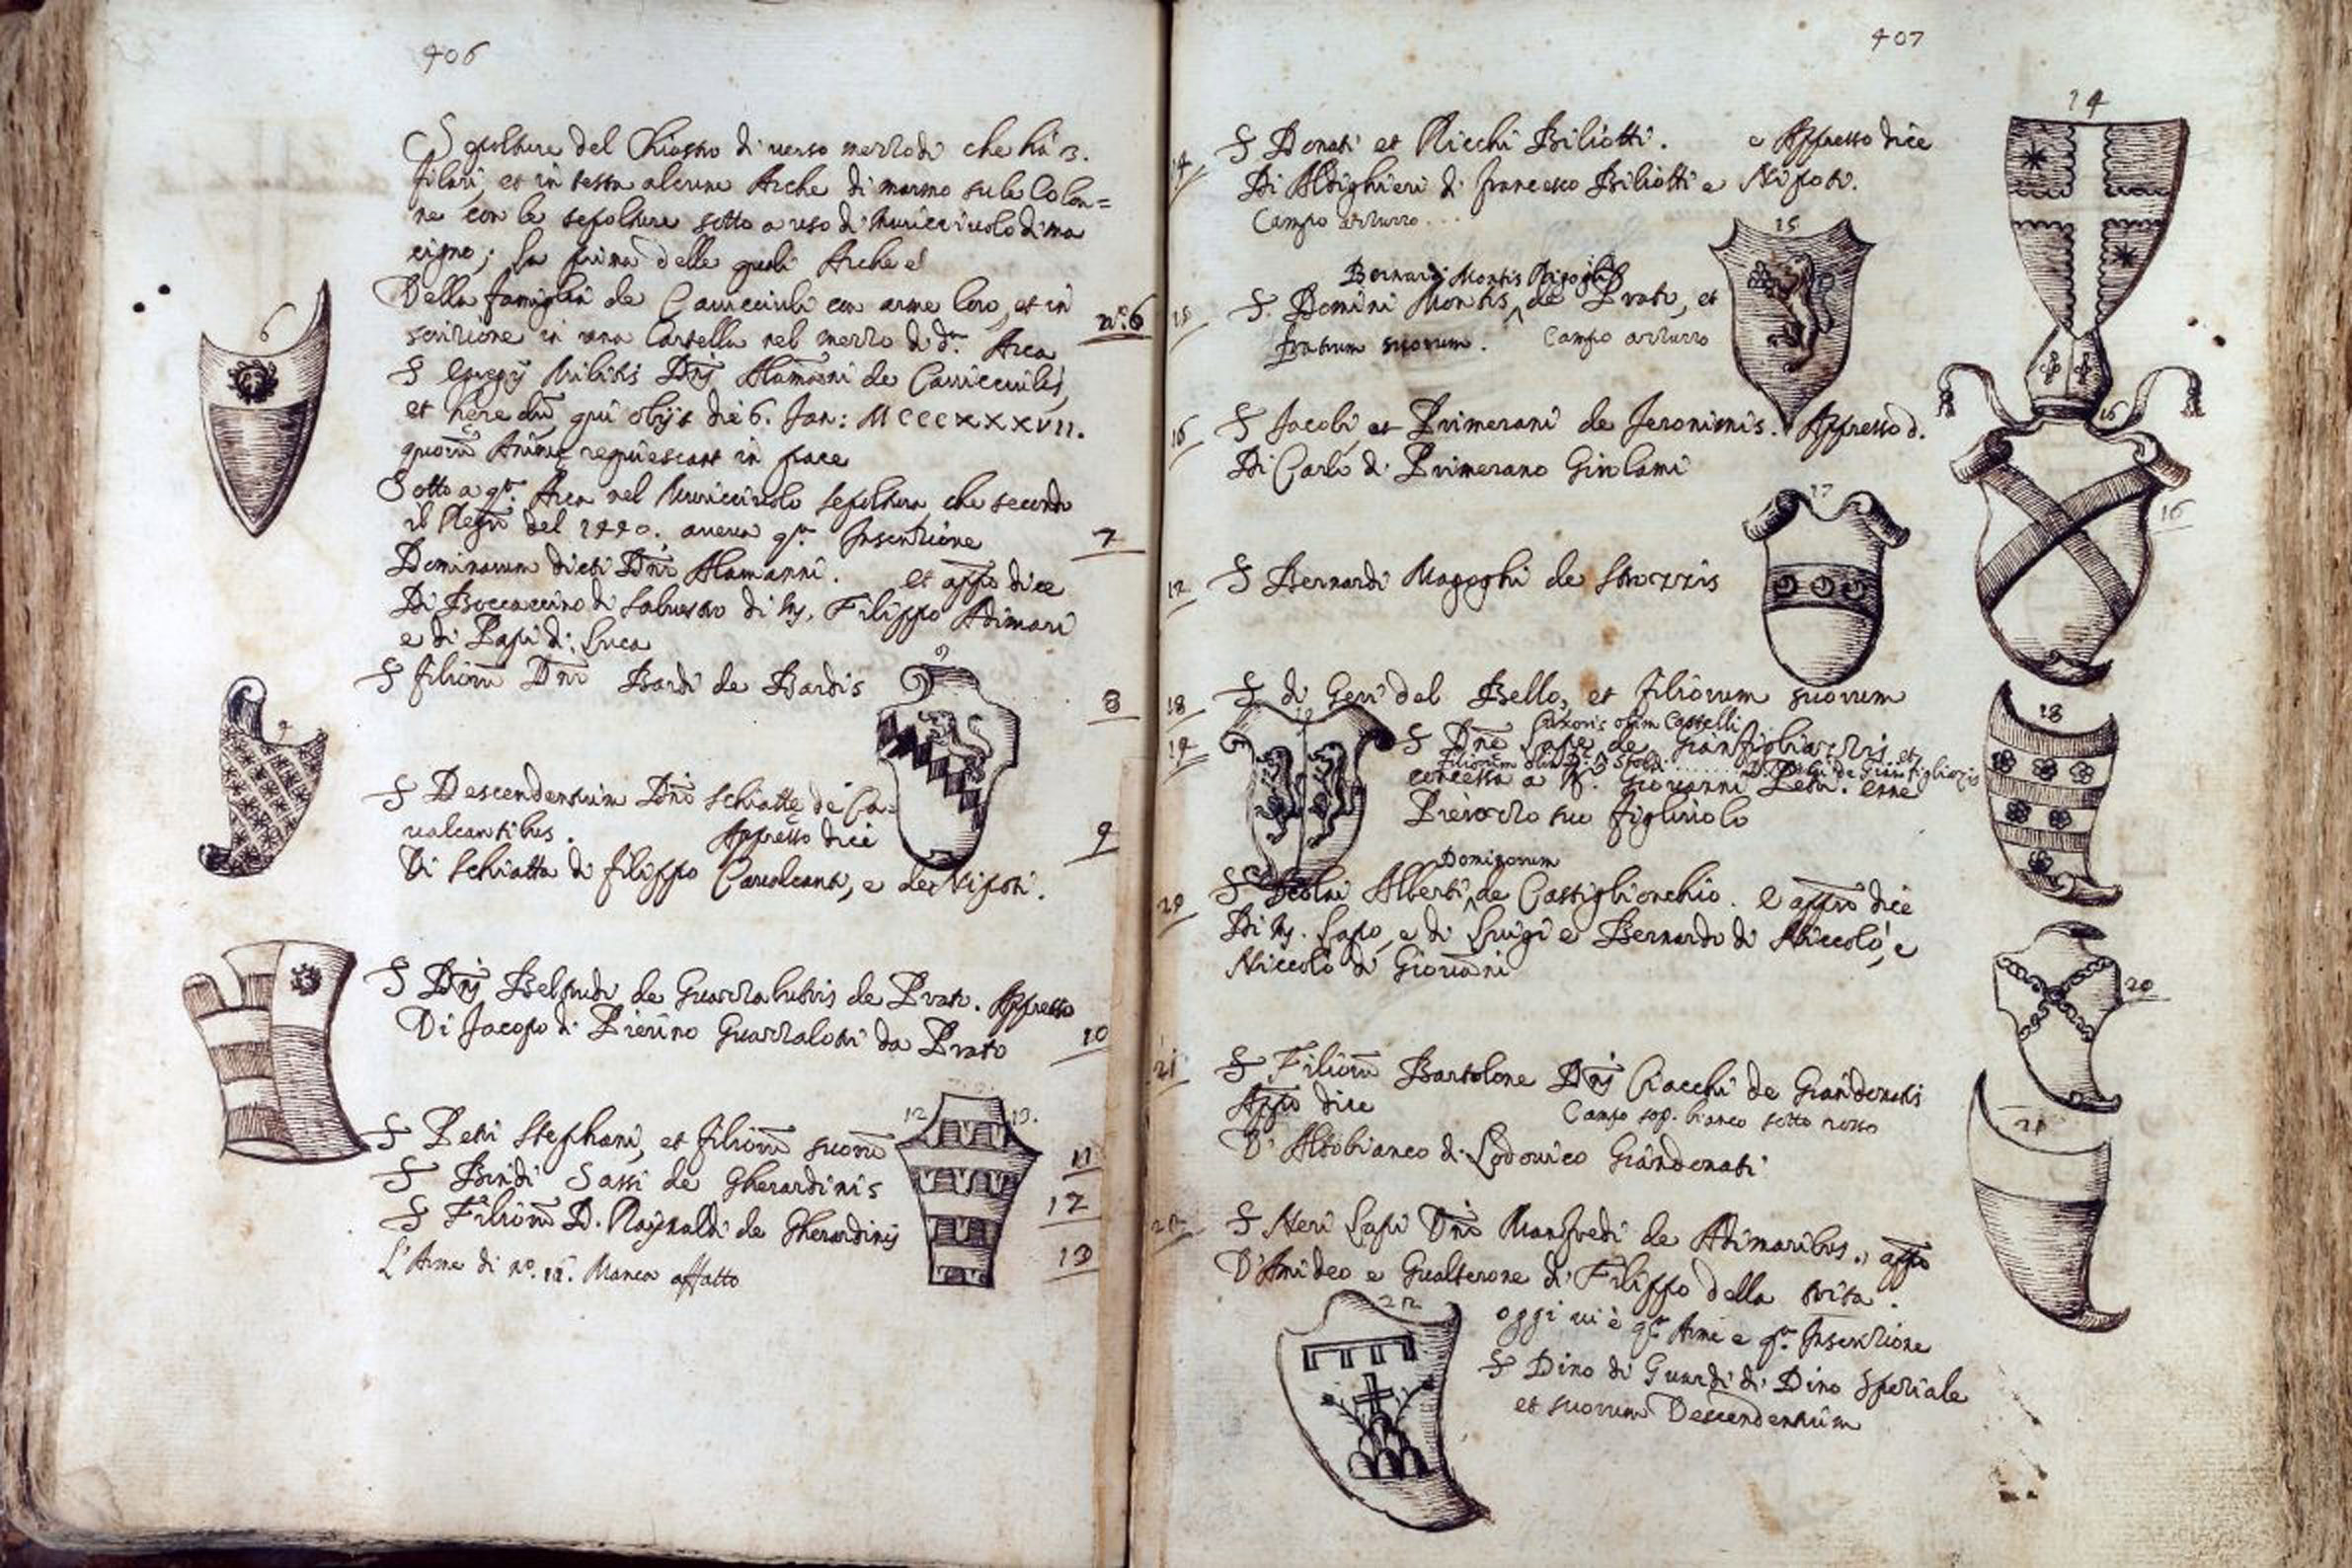 406
Sepolture del Chiostro di verso mezzodì che hà 3.
filari, et in testa alcune Arche di marmo sule Colon=
ne con le sepolture sotto a uso di muricciuolo di ma
cigno; la prima delle quali Arche è
Della famiglia de Cavicciuli con arme loro, et in
scrizione in una Cartella nel mezzo di d.ª Arca
nº. 6
S Egregij Militis Dnj Alamanni de Cavicciulis,
et qui obijt die 6. Jan: MCCCXXXVII.
quorū Anime requiescant in pace
Sotto a qª. Arca nel Muricciuolo sepoltura che secondo
il del 1440. aveva qª. Inscrizione
7
Dominarum dicti Dni Alamanni. et appº dice
Di Boccaccino di Salvestro di M. Filippo Adimari
e di Papi di Luca
S filiorū Dni Bardi de Bardis
8
S Descendentium Dni Schiatte de Ca=
valcantibus. Appresso dice
9
Di Schiatta di filippo Cavalcanti, e de Nipoti.
S Dnj Belfredi de Guazzalutris de Prato. Appresso
Di Jacopo di Pierino Guazzalotri da Prato
10
S Petri Stephani, et filiorū suorū
11
S Bindi Sassi de Gherardinis
12
S Filiorū D. Raynaldi de Gherardinis
13
L'Arme di nº. 12. Manca affatto
6
9
12 13.
407
14 S Donati et Ricchi Biliotti. e Appresso dice
Di Aldighieri di francesco Biliotti e Nipoti.
Campo azzurro...
Bernardi Montis
15 S. Domini Montis de Prato, et
fratrum suorum. Campo azzurro
16 S Jacobi et Primerani de Jeronimis. Appresso d.
Di Carlo di Primerano Girolami
S Bernardi Magoghi de Strozzis
18 S di Geri del Bello, et filiorum suorum
uxoris olim Castelli
19 S Dne Lape de Gianfigliazzis et
concessa a Giovanni
suo figliuolo
Dominorum
20 S Nicolai Alberti de Castiglionchio. E appº dice
Di M. Lapo, e di Luigi e Bernardo di Niccolò, e
Niccolò di Giovāni
21 S Filiorū Bartolone Dnj Ciacchi de Giandonatis
Appº dice Campo sop. bianco sotto rosso
D'Altobianco di Lodovico Giandonati
S Neri Lapi Dni Manfredi de Adimaribus., appº
D'Amideo e Gualterone di Filippo della trita.
oggi vi è qª Arme e qª. Inscrizione
S Dino di Guardi di Dino Speziale
et suorum Descendentium
14
15
16
17
16
18
20
21
22